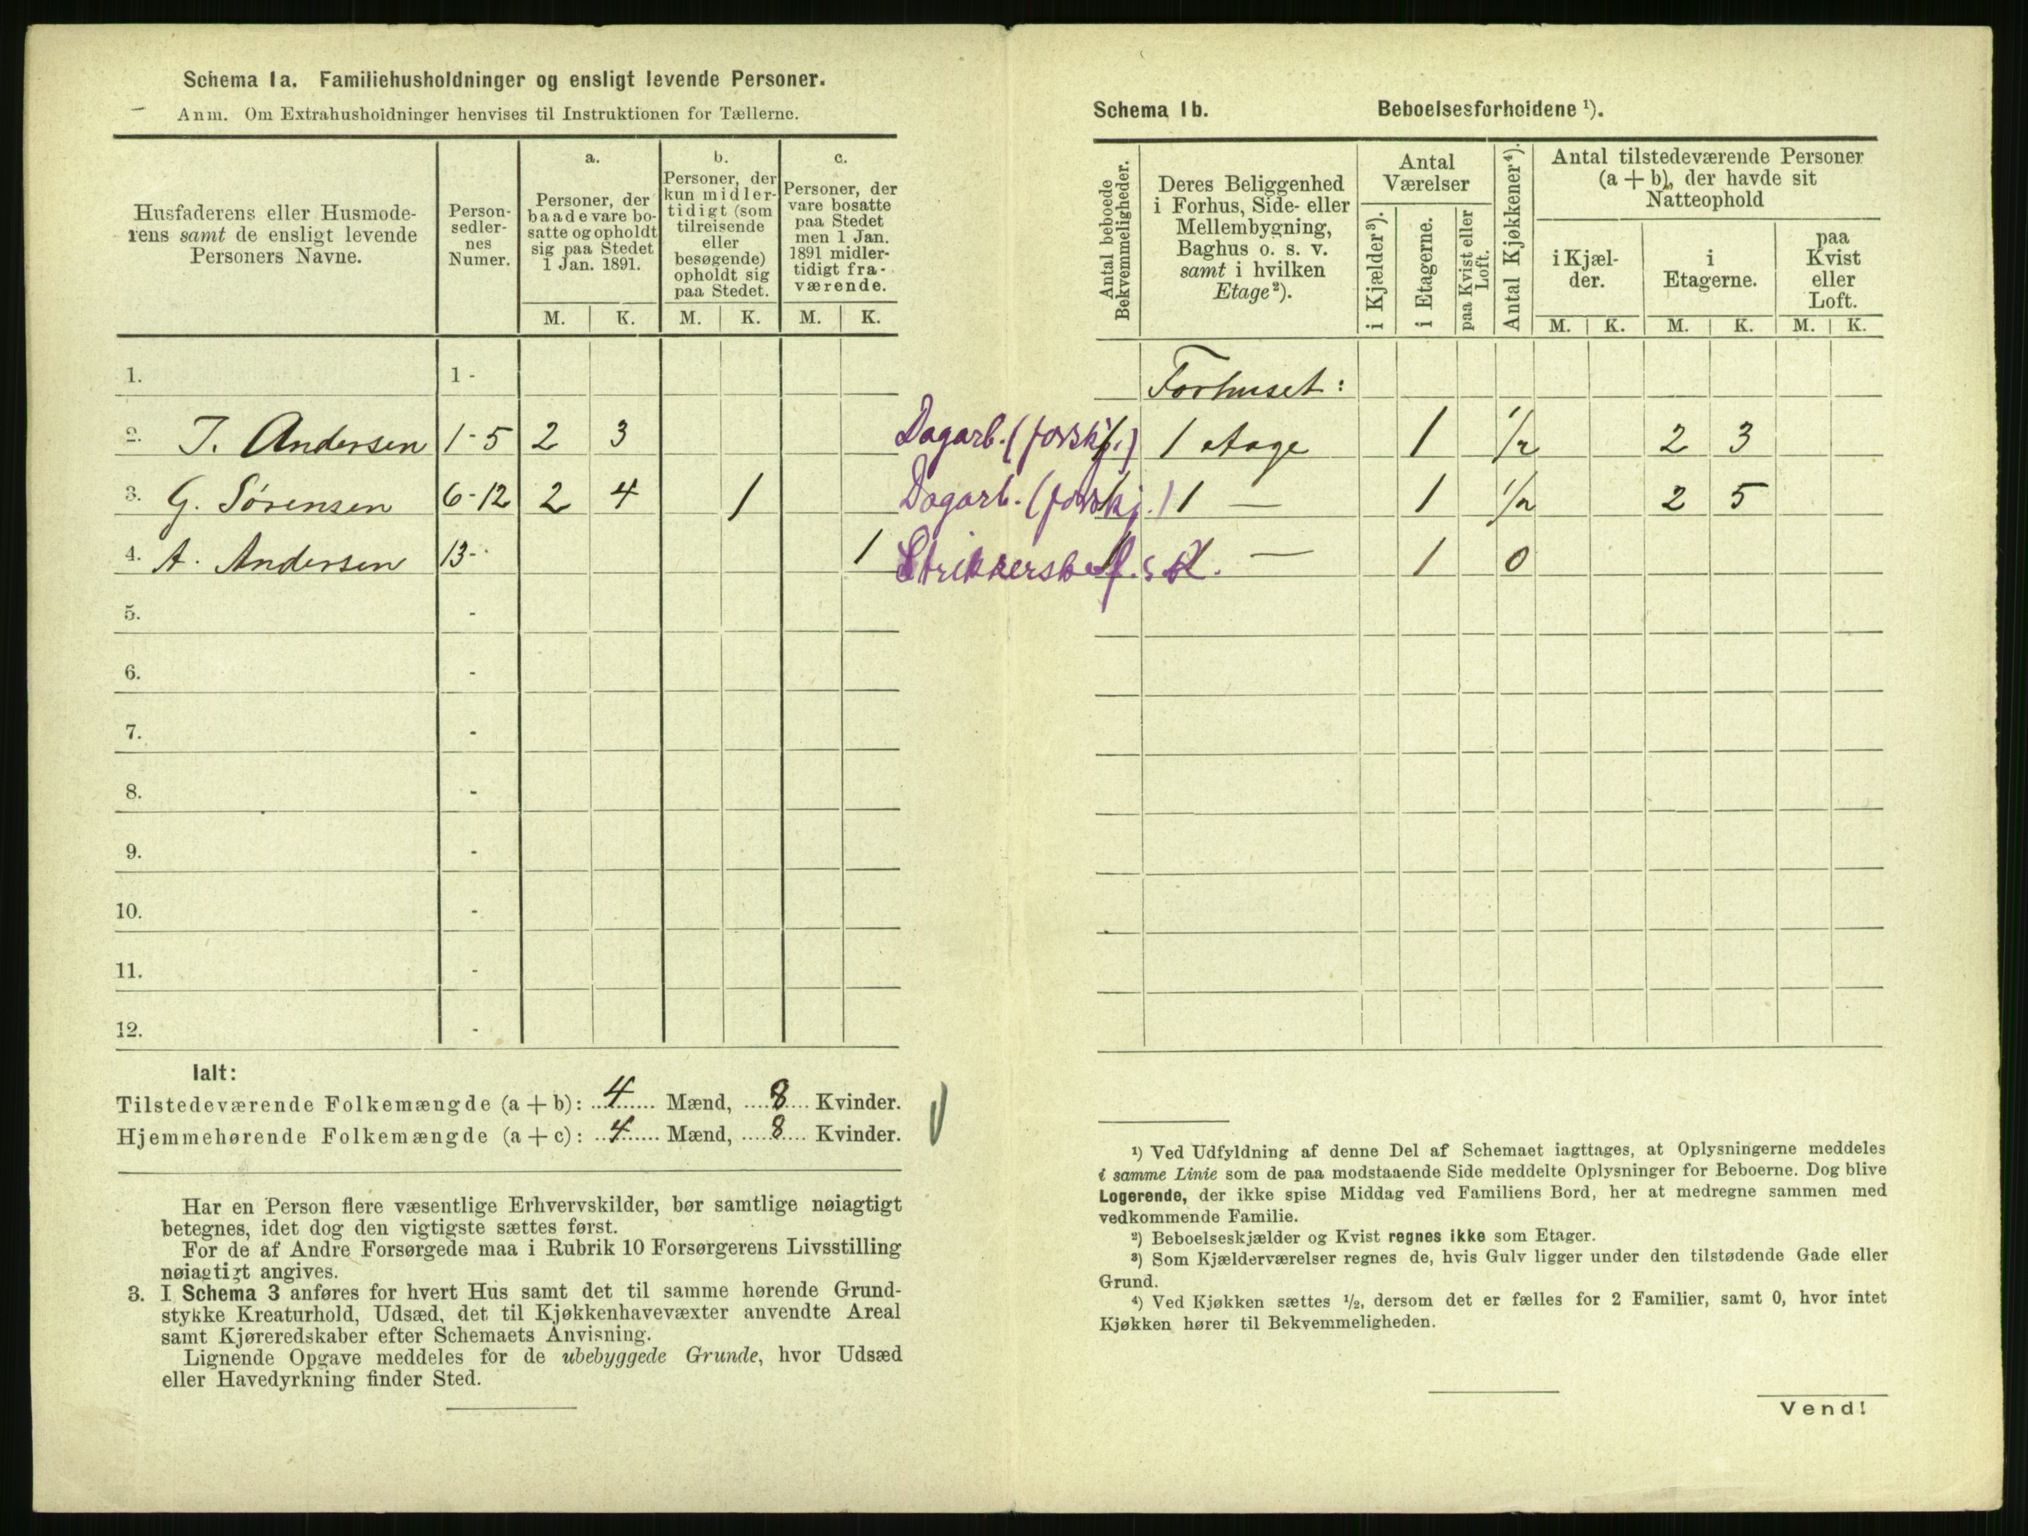 Schema 1a. Familiehusholdninger og ensligt levende Personer.
Anm. Om Extrahusholdninger henvises til Instruktionen for Tællerne.
Husfaderens eller Husmode-
rens samt de ensligt levende
Personers Navne.
Person-
sedler-
nes
Numer.
a.
Personer, der
baade vare bo-
satte og opholdt
sig paa Stedet
1 Jan. 1891.
b.
Personer, der
kun midler-
tidigt (som
tilreisende
eller
besøgende)
opholdt sig
paa Stedet.
c.
Personer, der
vare bosatte
paa Stedet
men 1 Jan.
1891 midler-
tidigt fra-
værende.
M. K. M. K. M. K.
1. 1 -
2. J. Andersen 1-5 2 3
3. G. Sørensen 6-12 2 4 1
4. A. Andersen 13- 1
5. -
6. -
7. -
8. -
9. -
10. -
11. -
12. -
Ialt:
Tilstedeværende Folkemængde (a + b): 4 Mænd, 8 Kvinder.
Hjemmehørende Folkemængde (a + c): 4 Mænd, 8 Kvinder.
Har en Person flere væsentlige Erhvervskilder, bør samtlige nøiagtigt
betegnes, idet dog den vigtigste sættes først.
For de af Andre Forsørgede maa i Rubrik 10 Forsørgerens Livsstilling
nøiagtigt angives.
3. I Schema 3 anføres for hvert Hus samt det til samme hørende Grund-
stykke Kreaturhold, Udsæd, det til Kjøkkenhavevæxter anvendte Areal
samt Kjøreredskaber efter Schemaets Anvisning.
Lignende Opgave meddeles for de ubebyggede Grunde, hvor Udsæd
eller Havedyrkning finder Sted.
Schema 1b. Beboelsesforholdene ¹).
Antal beboede
Bekvemmeligheder.
Deres Beliggenhed
i Forhus, Side- eller
Mellembygning,
Baghus o. s. v.
samt i hvilken
Etage²).
Antal
Værelser
i Kjælder³).
i Etagerne.
paa Kvist eller
Loft.
Antal Kjøkkener⁴).
Antal tilstedeværende Personer
(a + b), der havde sit
Natteophold
i Kjæl-
der.
i
Etagerne.
paa
Kvist
eller
Loft.
M. K. M. K. M. K.
Forhuset:
Dagarb. (forskj.) 1 1 etage 1 1/2 2 3
Dagarb. (forskj.) 1 1 — 1 1/2 2 5
1 — 1 0
¹) Ved Udfyldning af denne Del af Schemaet iagttages, at Oplysningerne meddeles
i samme Linie som de paa modstaaende Side meddelte Oplysninger for Beboerne. Dog blive
Logerende, der ikke spise Middag ved Familiens Bord, her at medregne sammen med
vedkommende Familie.
²) Beboelseskjælder og Kvist regnes ikke som Etager.
³) Som Kjælderværelser regnes de, hvis Gulv ligger under den tilstødende Gade eller
Grund.
⁴) Ved Kjøkken sættes ½, dersom det er fælles for 2 Familier, samt 0, hvor intet
Kjøkken hører til Bekvemmeligheden.
Vend!